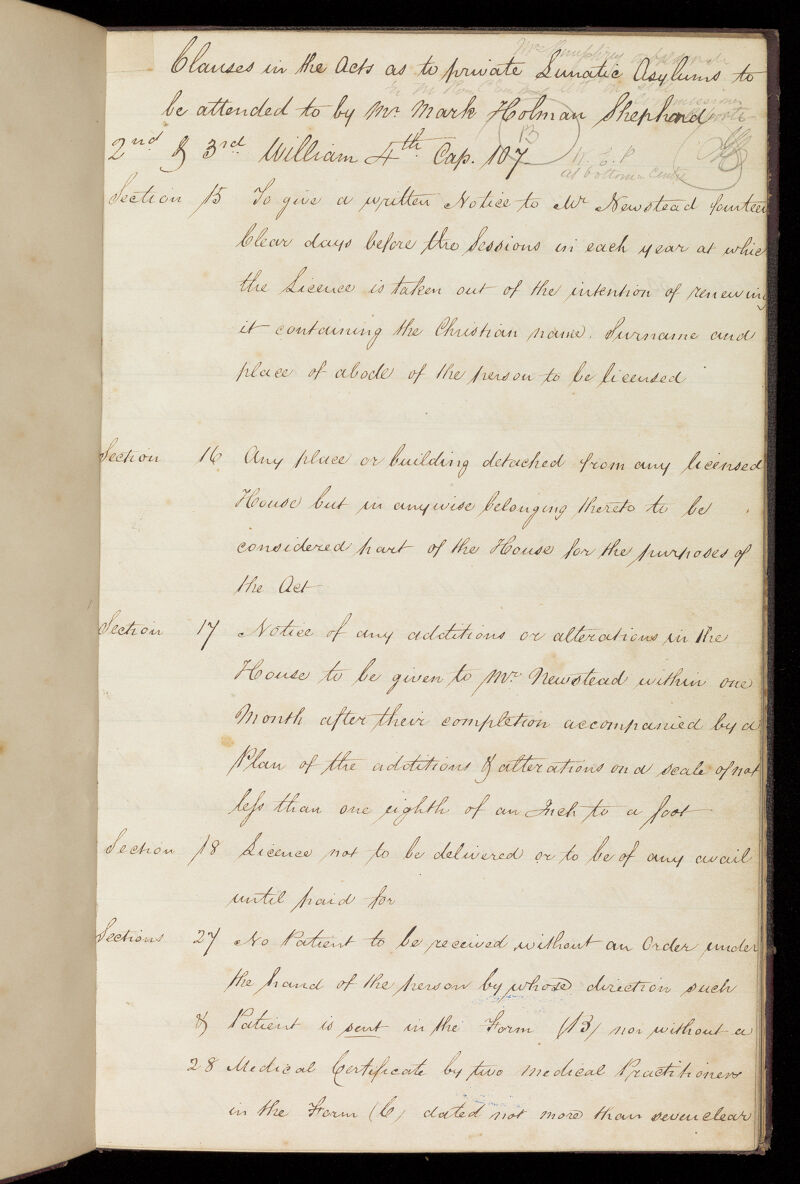 Clauses in the Acts as to private Lunatic Asylums to
be attended to by Mr Mark Holman Shepherd
B
2nd & 3rd William 4th Cap. 107
at bottom Centre
Section 15 To give a written Notice to Mr Newstead fourteen
Clear days before the Sessions in each year at which
the Licence is taken out of the intention of renewing
it containing the Christian name. Surname and
place of abode of the person to be licensed
Section 16 Any place or building detached from any licensed
House but in anywise belonging thereto to be
considered part of the House for the purposes of
the Act
Section 17 Notice of any additions or alterations in the
House to be given to Mr Newstead within one
Month after their completion accompanied by a
Plan of the additions & alterations on a scale of not
less than one eighth of an Inch to a foot
Section 18 Licence not to be delivered or to be of any avail
until paid for
Sections 27 No Patient to be received without an Order under
the hand of the person by whose direction such
& Patient is sent in the Form (B) nor without a
28 Medical Certificate by two medical Practitioners
in the Form (C) dated not more than seven clear